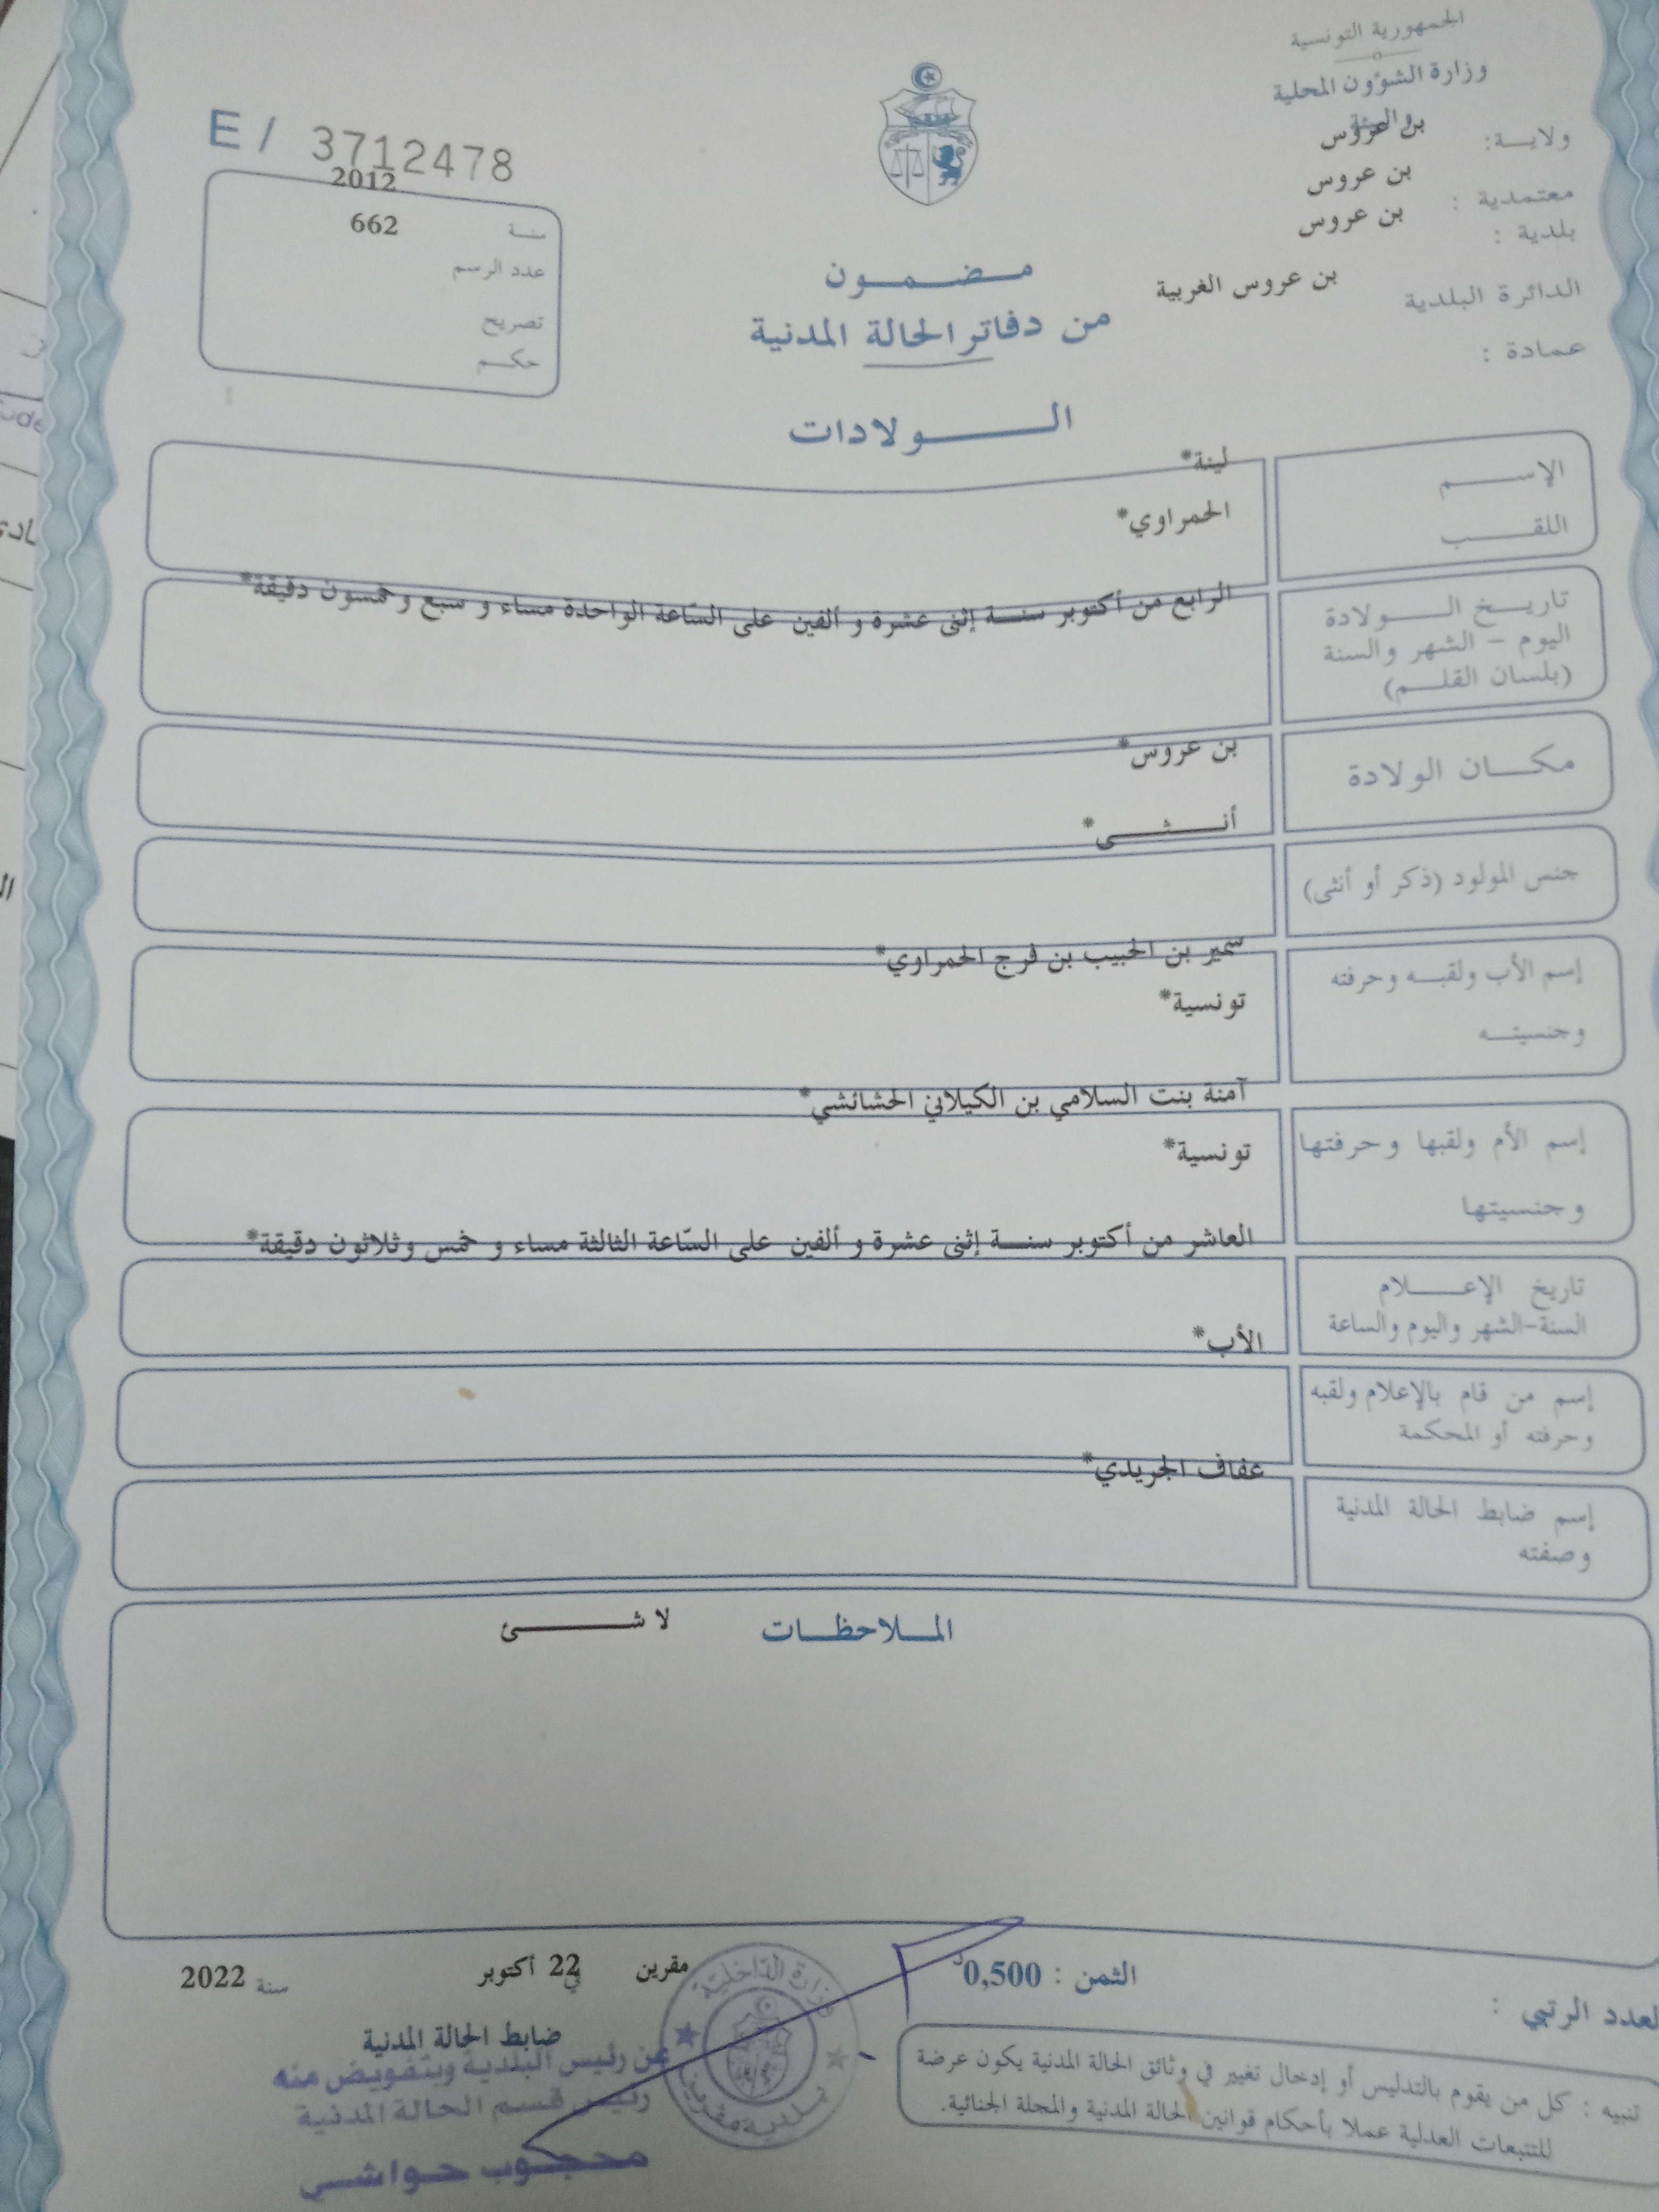 الجمهورية التونسية
وزارة الشؤون المحلية
والبيئة
ولايــة: بن عروس
معتمدية : بن عروس
بلدية : بن عروس
الدائرة البلدية بن عروس الغربية
عمادة :
E / 3712478
سنــة 2012
عدد الرسم 662
تصريح
حكــم
مــضــمــون
من دفاتر الحالة المدنية
الــــولادات
الإســــم لينة*
اللقــــب الحمراوي*
تاريــخ الــــولادة الرابع من أكتوبر سنــة إثنى عشرة و ألفين على السّاعة الواحدة مساء و سبع و خمسون دقيقة*
اليوم – الشهر والسنة
(بلسان القلــم)
مكــان الولادة بن عروس*
جنس المولود (ذكر أو أنثى) أنــثــى*
إسم الأب ولقبــه وحرفته سمير بن الحبيب بن فرج الحمراوي*
وجنسيتــه تونسية*
إسم الأم ولقبها وحرفتها آمنة بنت السلامي بن الكيلاني الحشائشي*
وجنسيتها تونسية*
تاريخ الإعــــلام العاشر من أكتوبر سنــة إثنى عشرة و ألفين على السّاعة الثالثة مساء و خمس وثلاثون دقيقة*
السنة-الشهر واليوم والساعة
إسم من قام بالإعلام ولقبه الأب*
وحرفته أو المحكمة
إسم ضابط الحالة المدنية عفاف الجريدي*
وصفته
المــلاحظــات لا شــــئ
الثمن : 0,500د
مقرين في 22 أكتوبر سنة 2022
العدد الرتبي :
ضابط الحالة المدنية
عن رئيس البلدية وبتفويض منه
رئيس قسم الحالة المدنية
محجوب حواشي
وزارة الداخلية
بلدية مقرين
تنبيه : كل من يقوم بالتدليس أو إدخال تغيير في وثائق الحالة المدنية يكون عرضة
للتتبعات العدلية عملا بأحكام قوانين الحالة المدنية والمجلة الجنائية.